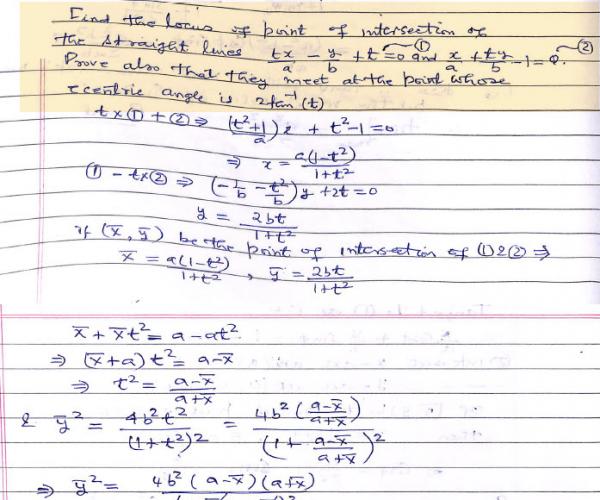 Find the locus of point of intersection of
the straight lines tx/a - y/b + t = 0 ① and x/a + ty/b - 1 = 0. ②
Prove also that they meet at the point whose
eccentric angle is 2tan⁻¹(t)
t × ① + ② ⇒ ((t²+1)/a) x + t² - 1 = 0
⇒ x = a(1-t²)/(1+t²)
① - t×② ⇒ (-1/b - t²/b) y + 2t = 0
y = 2bt/(1+t²)
if (x̄, ȳ) be the point of intersection of ① & ② ⇒
x̄ = a(1-t²)/(1+t²) , ȳ = 2bt/(1+t²)
x̄ + x̄t² = a - at²
⇒ (x̄+a) t² = a-x̄
⇒ t² = (a-x̄)/(a+x̄)
& ȳ² = 4b²t²/(1+t²)² = 4b²((a-x̄)/(a+x̄))/(1+(a-x̄)/(a+x̄))²
⇒ ȳ² = 4b²(a-x̄)(a+x̄)